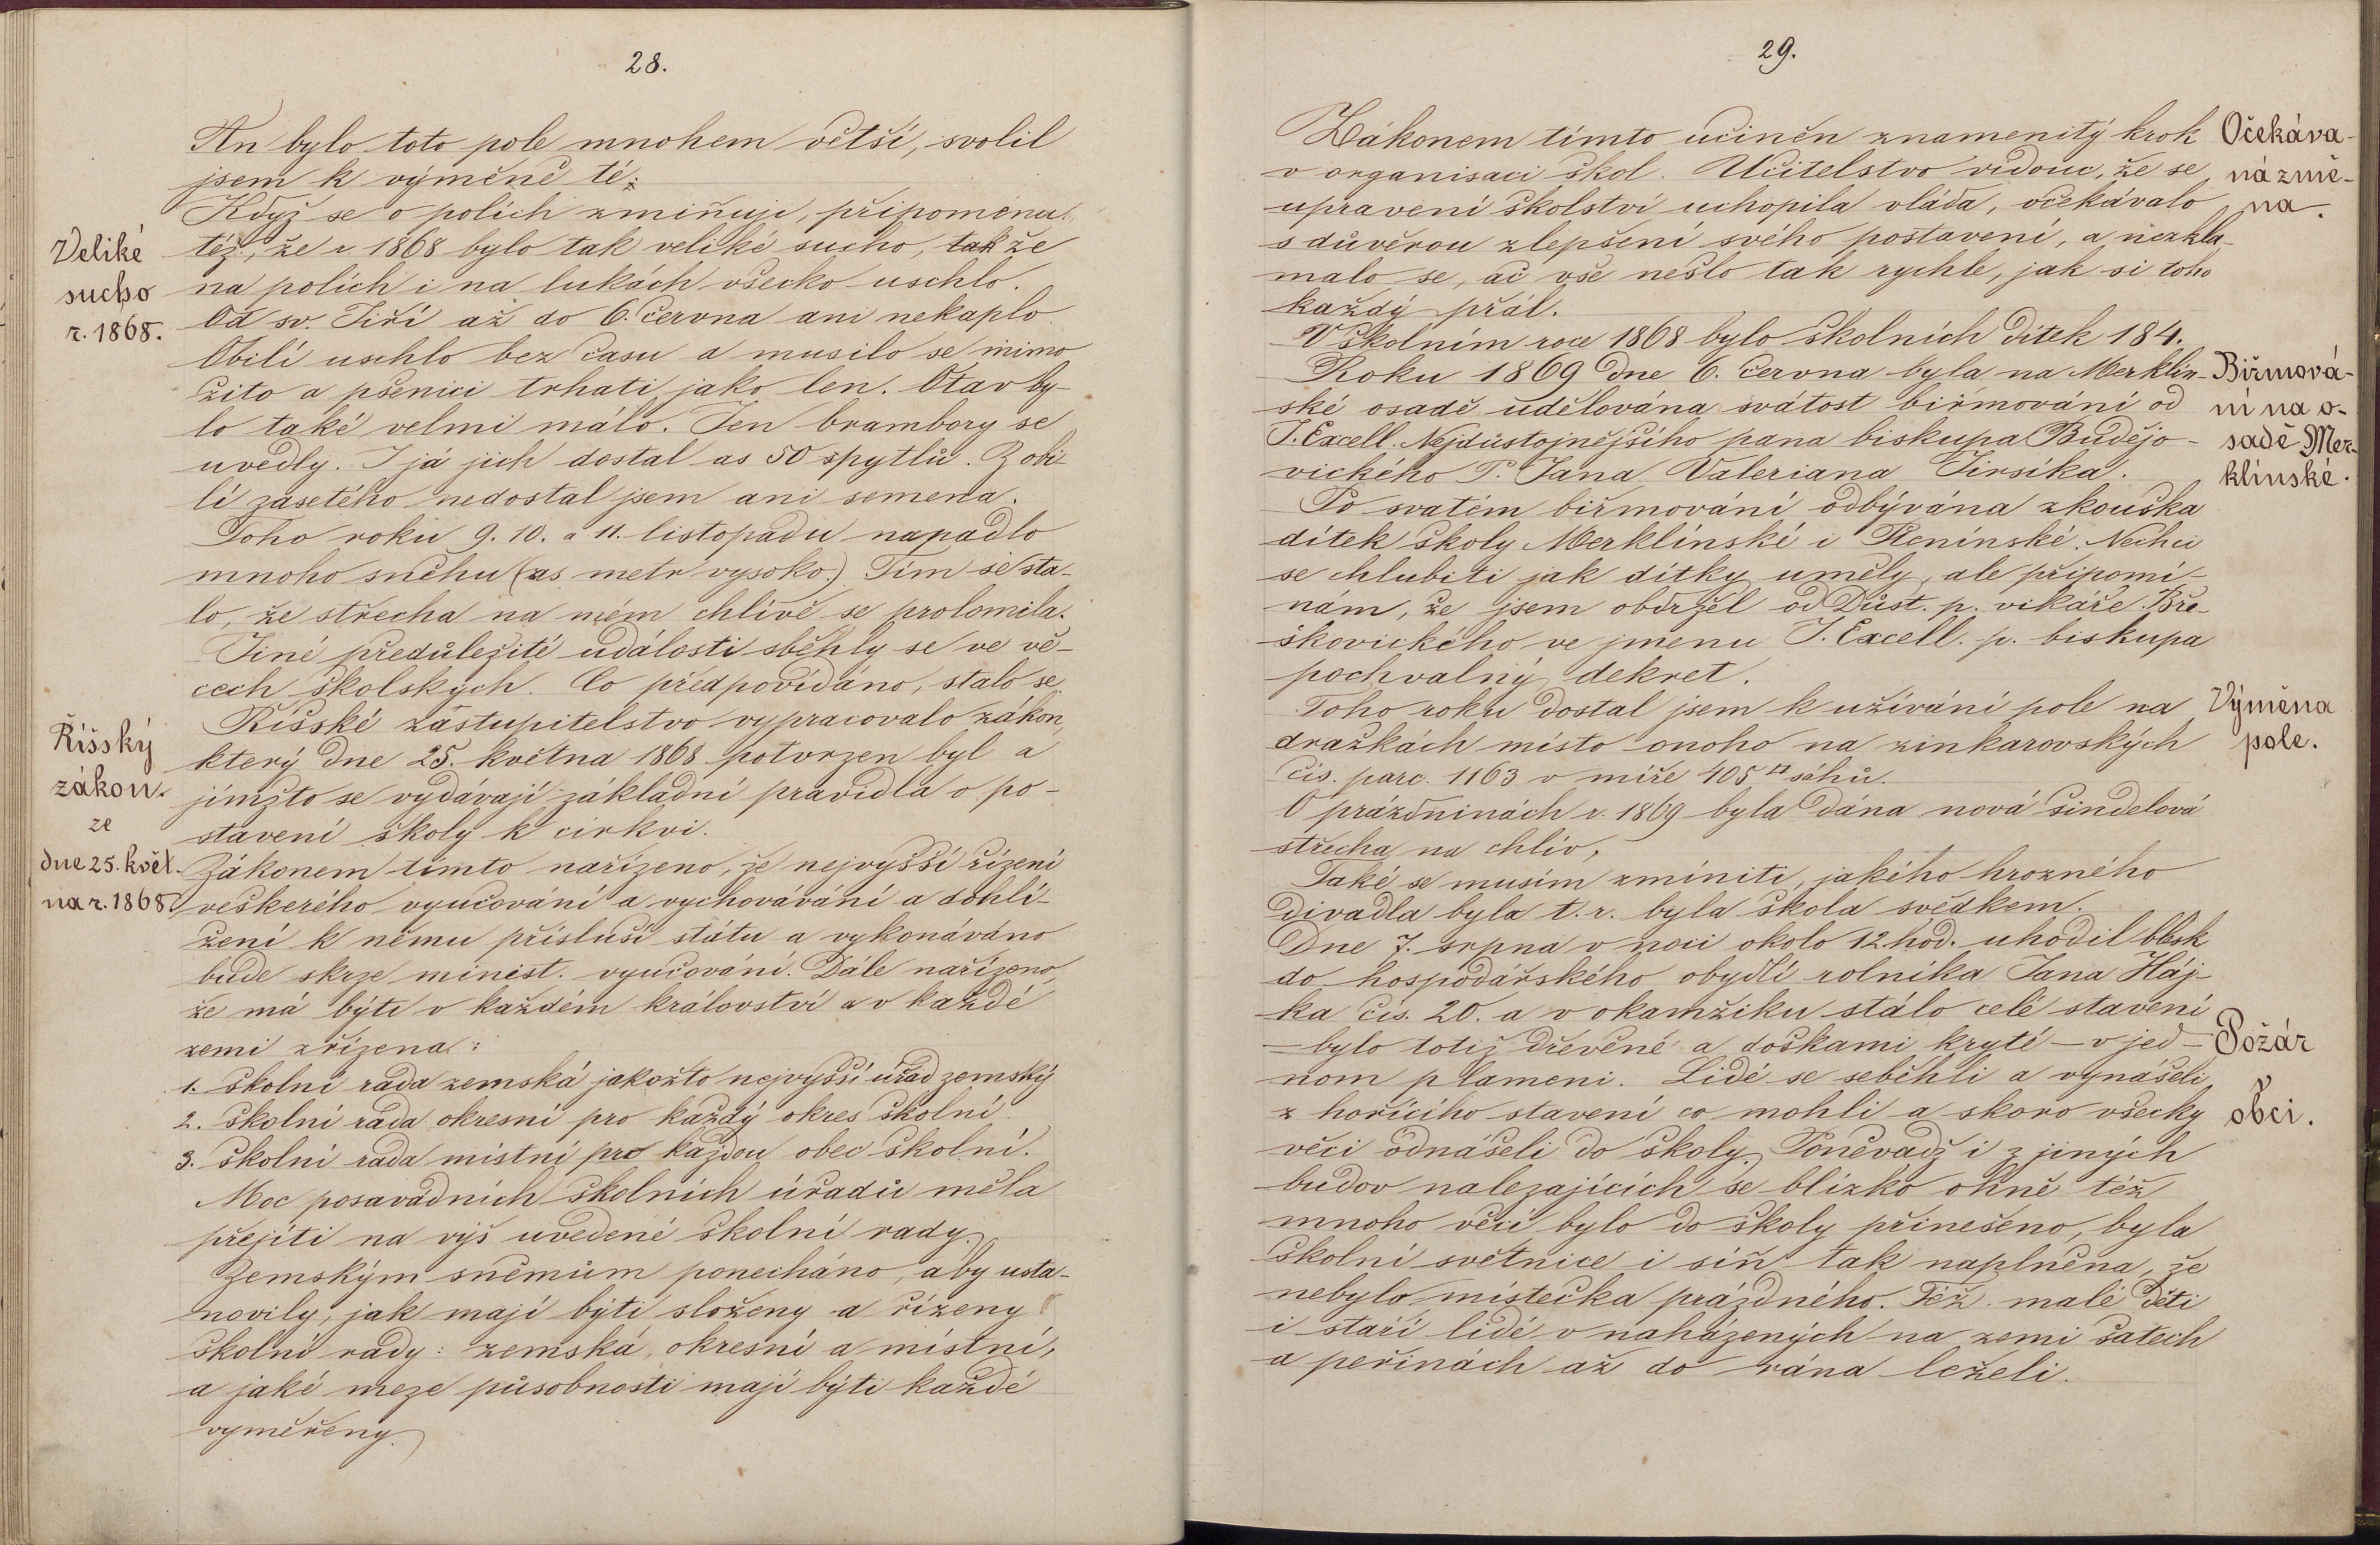 28.
An bylo toto pole mnohem větší, svolil
jsem k výměně té.
Když se o polích zmiňuji, připomenu
Veliké
sucho
r. 1868.
též, že r 1868 bylo tak veliké sucho, tak že
na polích i na lukách všecko uschlo.
Od sv. Jiří až do 6. června ani nekaplo
Obilí uschlo bez času a musilo se mimo
žito a pšenici trhati jako len. Otav by-
lo také velmi málo. Jen brambory se
uvedly. I já jich dostal as 50 spytlů. Z obi-
lí zasetého nedostal jsem ani semena.
Toho roku 9. 10. a 11. listopadu napadlo
mnoho sněhu (as metr vysoko.) Tím se sta-
lo, že střecha na mém chlívě se prolomila.
Jiné předůležité události sběhly se ve vě-
cech školských. Co předpovídáno, stalo se.
Říšský
zákon.
ze
dne 25. květ.
na r. 1868
Říšské zástupitelstvo vypracovalo zákon,
který dne 25. května 1868 potvrzen byl a
jímžto se vydávají základní pravidla o po-
stavení školy k církvi.
Zákonem tímto nařízeno, že nejvyšší řízení
veškerého vyučování a vychovávání a dohlí-
žení k němu přísluší státu a vykonáváno
bude skrze minist. vyučování. Dále nařízeno,
že má býti v každém království a v každé
zemi zřízena:
1. školní rada zemská jakožto nejvyšší úřad zemský
2. školní rada okresní pro každý okres školní
3. školní rada místní pro každou obec školní.
Moc posavádních školních úřadů měla
přejíti na výš uvedené školní rady.
Zemským sněmům ponecháno, aby usta-
novily, jak mají býti složeny a řízeny
školní rady: zemská, okresní a místní,
a jaké meze působnosti mají býti každé
vyměřeny.
29.
Zákonem tímto učiněn znamenitý krok
v organisaci škol. Učitelstvo vidouc, že se
upravení školství uchopila vláda, očekávalo
s důvěrou zlepšení svého postavení, a nezkla-
malo se, ač vše nešlo tak rychle, jak si toho
každý přál.
Očekáva-
ná změ-
na.
V školním roce 1868 bylo školních dítek 184.
Roku 1869 dne 6. června byla na Merklín-
ské osadě udělována svátost biřmování od
J. Excell. Nejdůstojnějšího pana biskupa Budějo-
vického P. Jana Valeriana Jirsíka.
Biřmová-
ní na o-
sadě Mer-
klínské.
Po svatém biřmování odbývána zkouška
dítek školy Merklínské i Ptenínské. Nechci
se chlubiti jak dítky uměly, ale připomí-
nám, že jsem obdržel od Důst. p. vikáře Bře-
škovického ve jmenu J. Excell. p. biskupa
pochvalný dekret.
Toho roku dostal jsem k užívání pole na
dražkách místo onoho na zinkarovských
čís. parc. 1163 v míře 405 □ sáhů.
Výměna
pole.
O prázdninách r. 1869 byla dána nová šindelová
střecha na chlív,
Také se musím zmíniti, jakého hrozného
divadla byla t. r. byla škola svědkem.
Dne 7. srpna v noci okolo 12 hod. uhodil blesk
do hospodářského obydlí rolníka Jana Háj-
ka čís. 20. a v okamžiku stálo celé stavení
– bylo totiž dřevěné a doškami kryté – v jed-
nom plameni. Lidé se seběhli a vynášeli
z hořícího stavení co mohli a skoro všecky
věci odnášeli do školy. Poněvadž i z jiných
budov nalezajících se blízko ohně též
mnoho věcí bylo do školy přinešeno, byla
školní světnice i síň tak naplněna, že
nebylo místečka prázdného. Též malé děti
i staří lidé v naházených na zemi šatech
a peřinách až do rána leželi.
Požár
v
obci.